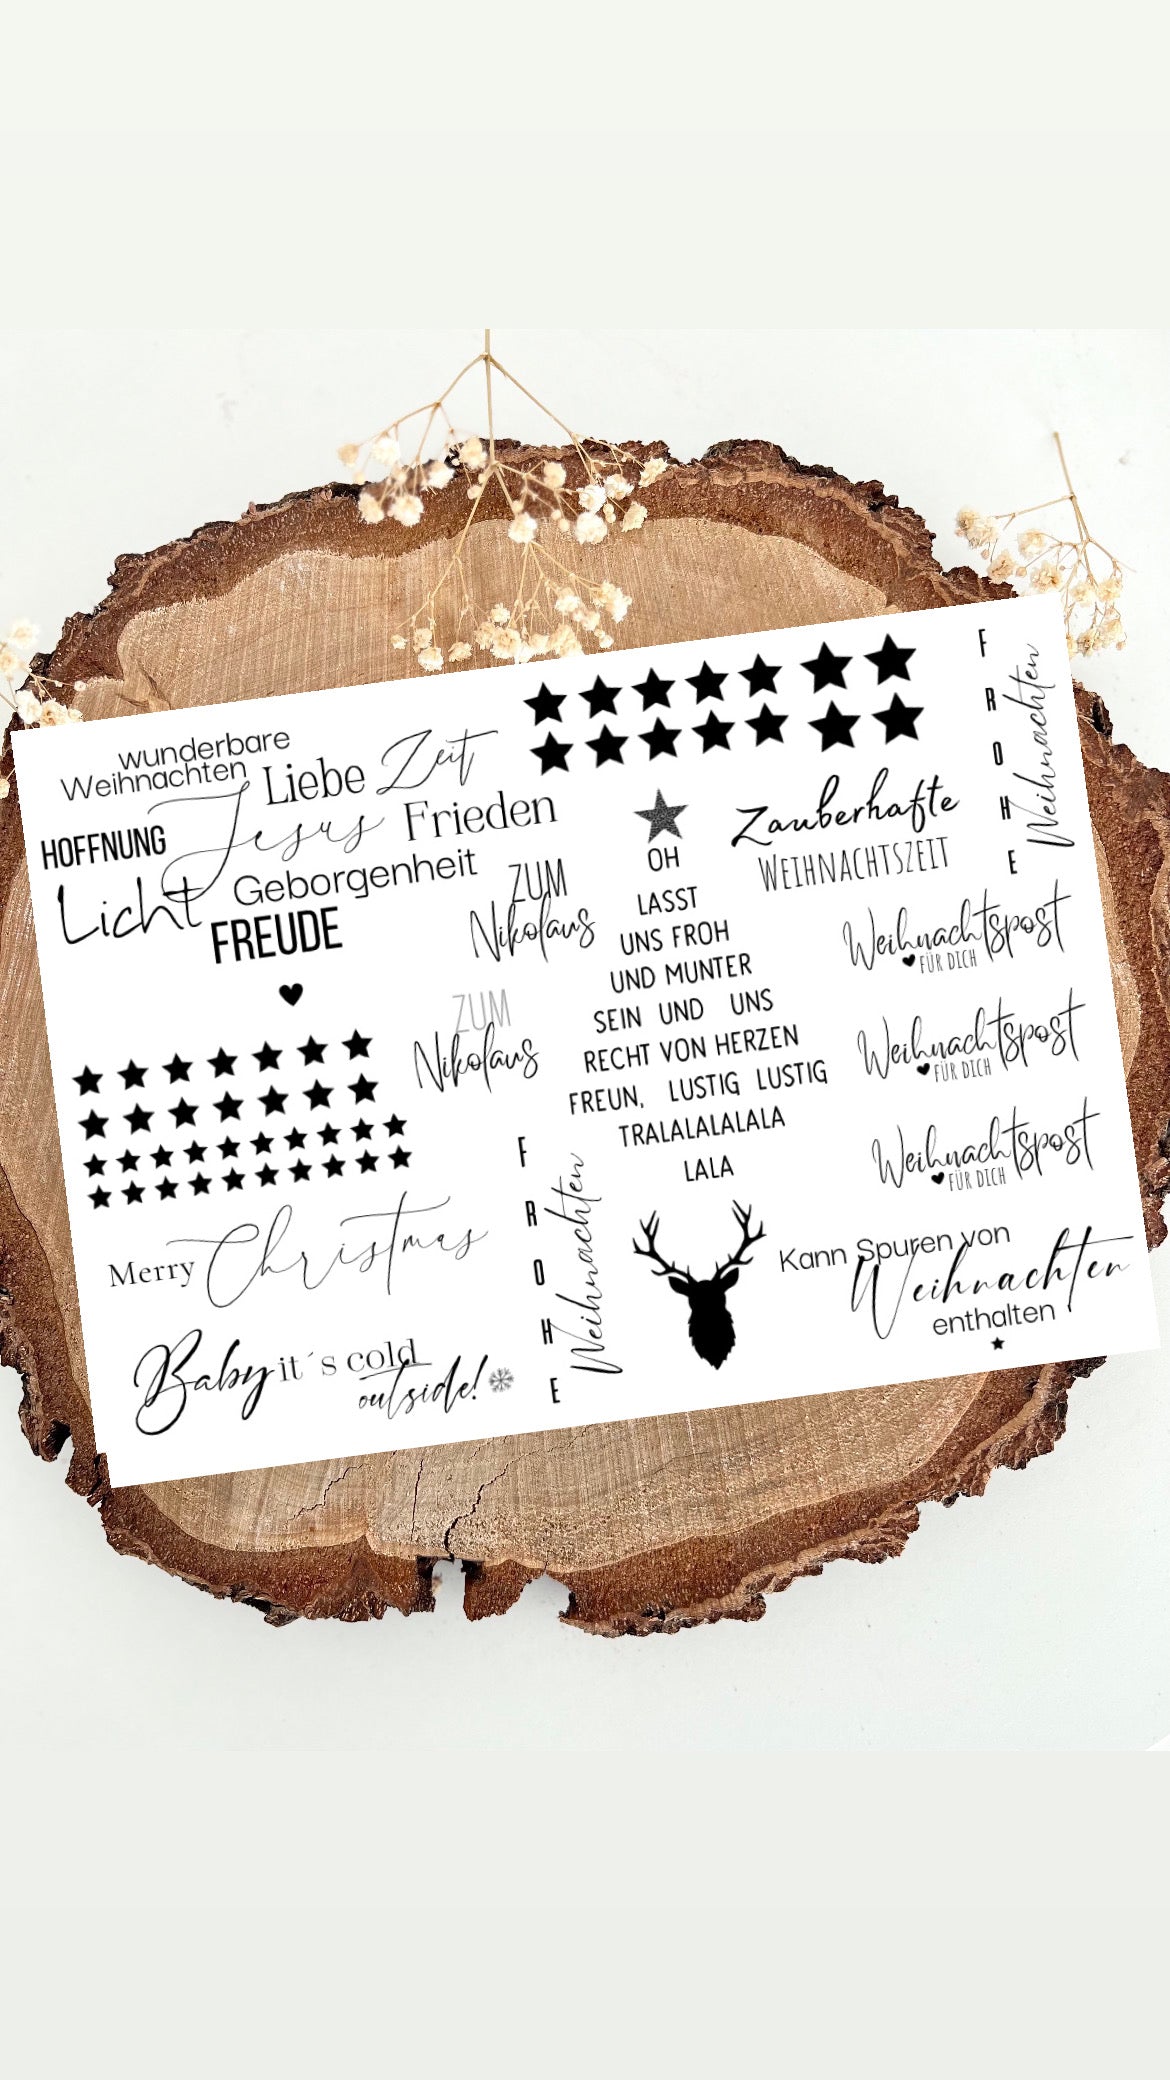 wunderbare
Weihnachten
Liebe Zeit
Jesus Frieden
HOFFNUNG
Licht Geborgenheit
FREUDE
ZUM
Nikolaus
ZUM
Nikolaus
Merry Christmas
Baby it´s cold
outside!
FROHE
Weihnachten
OH
LASST
UNS FROH
UND MUNTER
SEIN UND UNS
RECHT VON HERZEN
FREUN, LUSTIG LUSTIG
TRALALALALALA
LALA
Zauberhafte
WEIHNACHTSZEIT
FROHE
Weihnachten
Weihnachtspost
FÜR DICH
Weihnachtspost
FÜR DICH
Weihnachtspost
FÜR DICH
Kann Spuren von
Weihnachten
enthalten